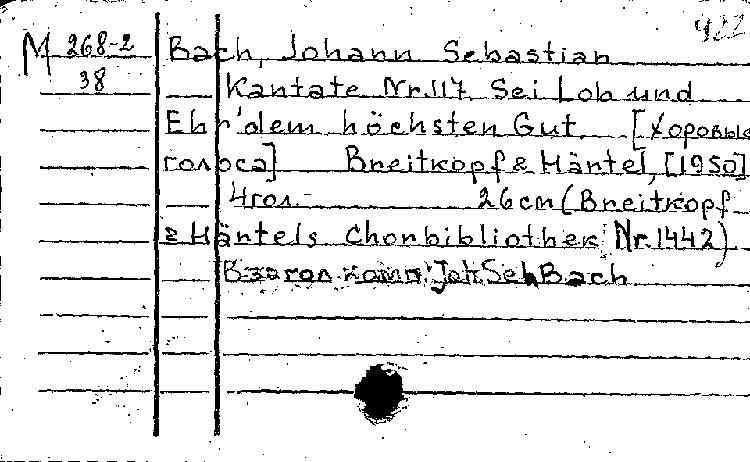 422
М 268-2 Bach, Johann Sebastian
38 Kantate Nr.117. Sei Lob und
Ehr' dem höchsten Gut. [Хоровые
голоса] Breitkopf & Häntel, [1950]
4гол.- 26cm (Breitkopf
& Häntels Chorbibliothek Nr.1442)
В заглав. комп.: Joh. Seb. Bach